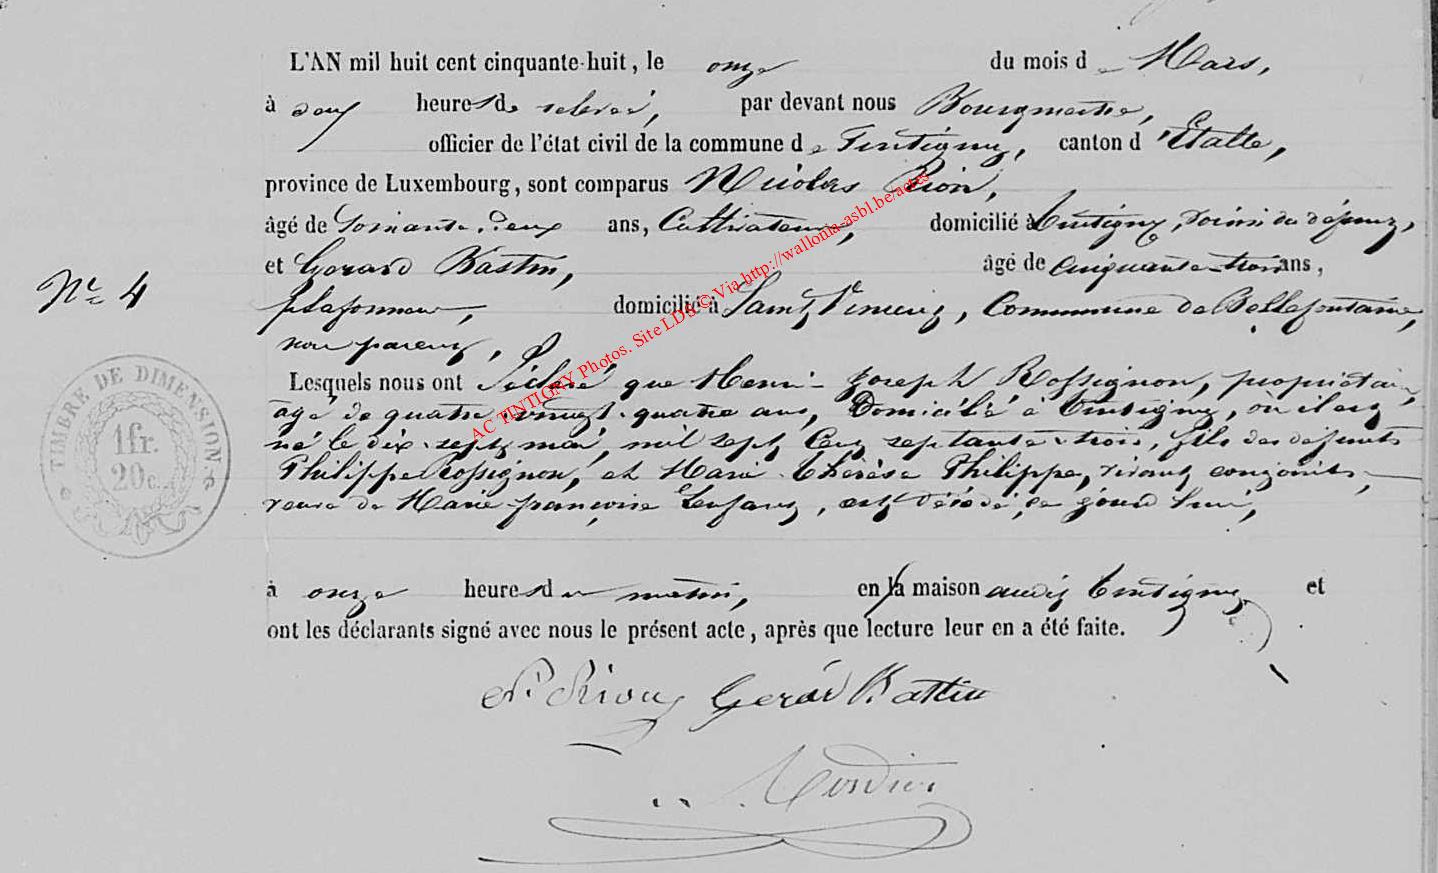 L'AN mil huit cent cinquante-huit, le onze du mois de Mars,
à deux heures de relevée, par devant nous Bourgmestre,
officier de l'état civil de la commune de Tintigny, canton d'Etalle,
province de Luxembourg, sont comparus Nicolas Rion,
âgé de soixante-deux ans, Cultivateur, domicilié à Tintigny, voisin du défunt,
et Gérard Bastin, âgé de cinquante-trois ans,
N° 4
plafonneur, domicilié à Saint Vincent, Commune de Bellefontaine,
non parent,
Lesquels nous ont Déclaré que Henri-Joseph Rossignon, propriétaire,
âgé de quatre-vingt-quatre ans, Domicilié à Tintigny, où il est
né le dix-sept mai, mil sept cent septante-trois, fils des défunts
Philippe Rossignon, et Marie-Thérèse Philippe, vivants conjoints,
veuve de Marie-françoise Lenfant, est décédé, ce jourd'hui,
à onze heures du matin, en la maison audit Tintigny et
ont les déclarants signé avec nous le présent acte, après que lecture leur en a été faite.
N. Rion Gerar Bastin
TIMBRE DE DIMENSION.
1fr.
20c.
AC TINTIGNY Photos. Site LDS © Via http://wallonia-asbl.be/actes